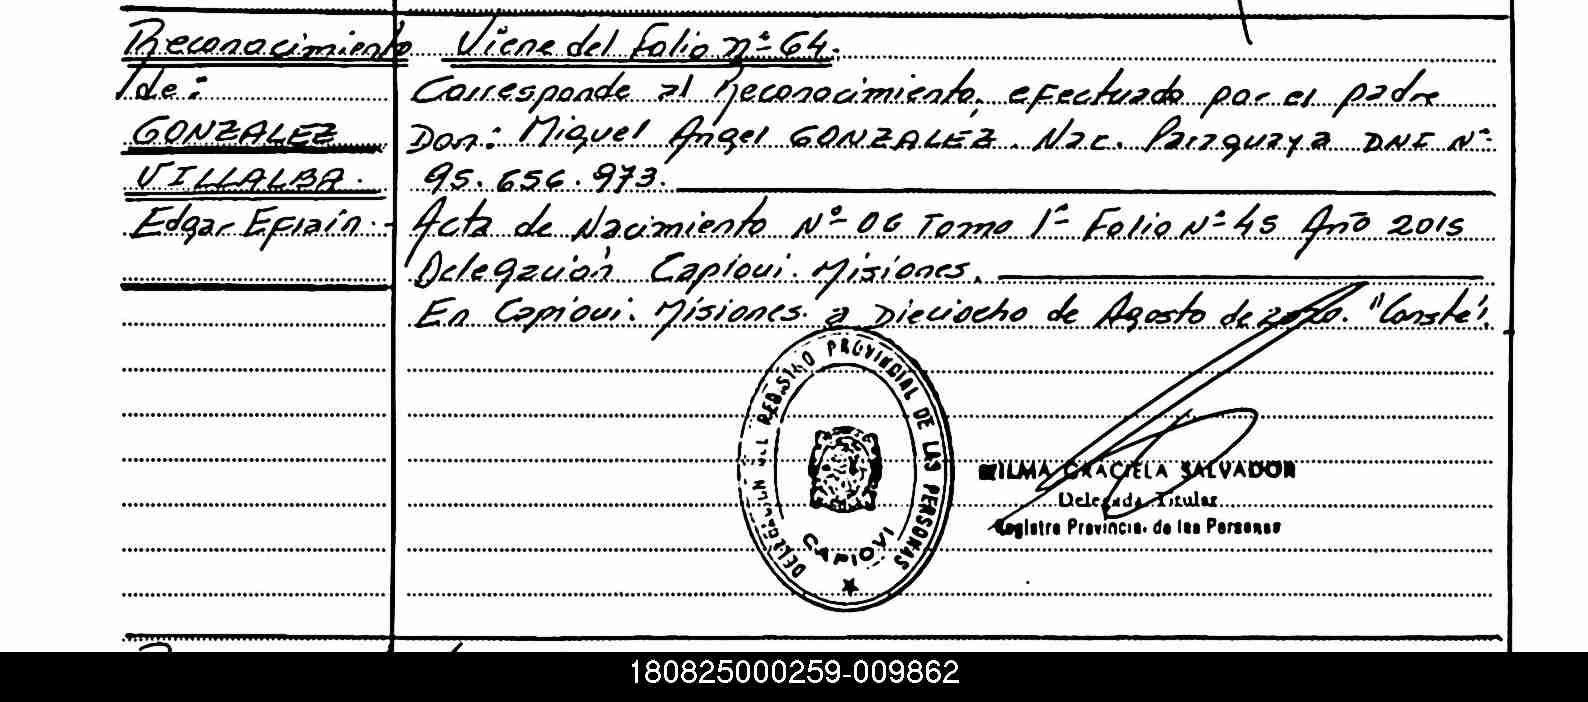 Reconocimiento
de:
GONZALEZ
VILLALBA.
Edgar Efraín.-
Viene del Folio nº 64.
Corresponde al Reconocimiento, efectuado por el padre
Don: Miguel Angel GONZALEZ. Nac. Paraguaya DNI Nº
95.656.973.
Acta de Nacimiento Nº 06 Tomo 1º Folio Nº 45 Año 2015
Delegación Capiovi. Misiones.
En Capiovi. Misiones. a Dieciocho de Agosto de 2020. "Conste".
DELEGACION DEL REGISTRO PROVINCIAL DE LAS PERSONAS
CAPIOVI
WILMA GRACIELA SALVADOR
Delegada Titular
Registro Provincial de las Personas
180825000259-009862